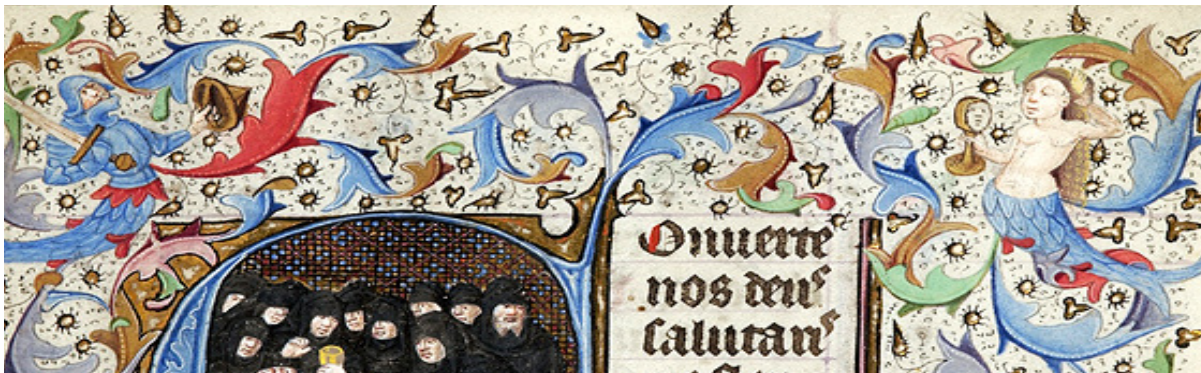 Onuerte
nos deus
salutaris